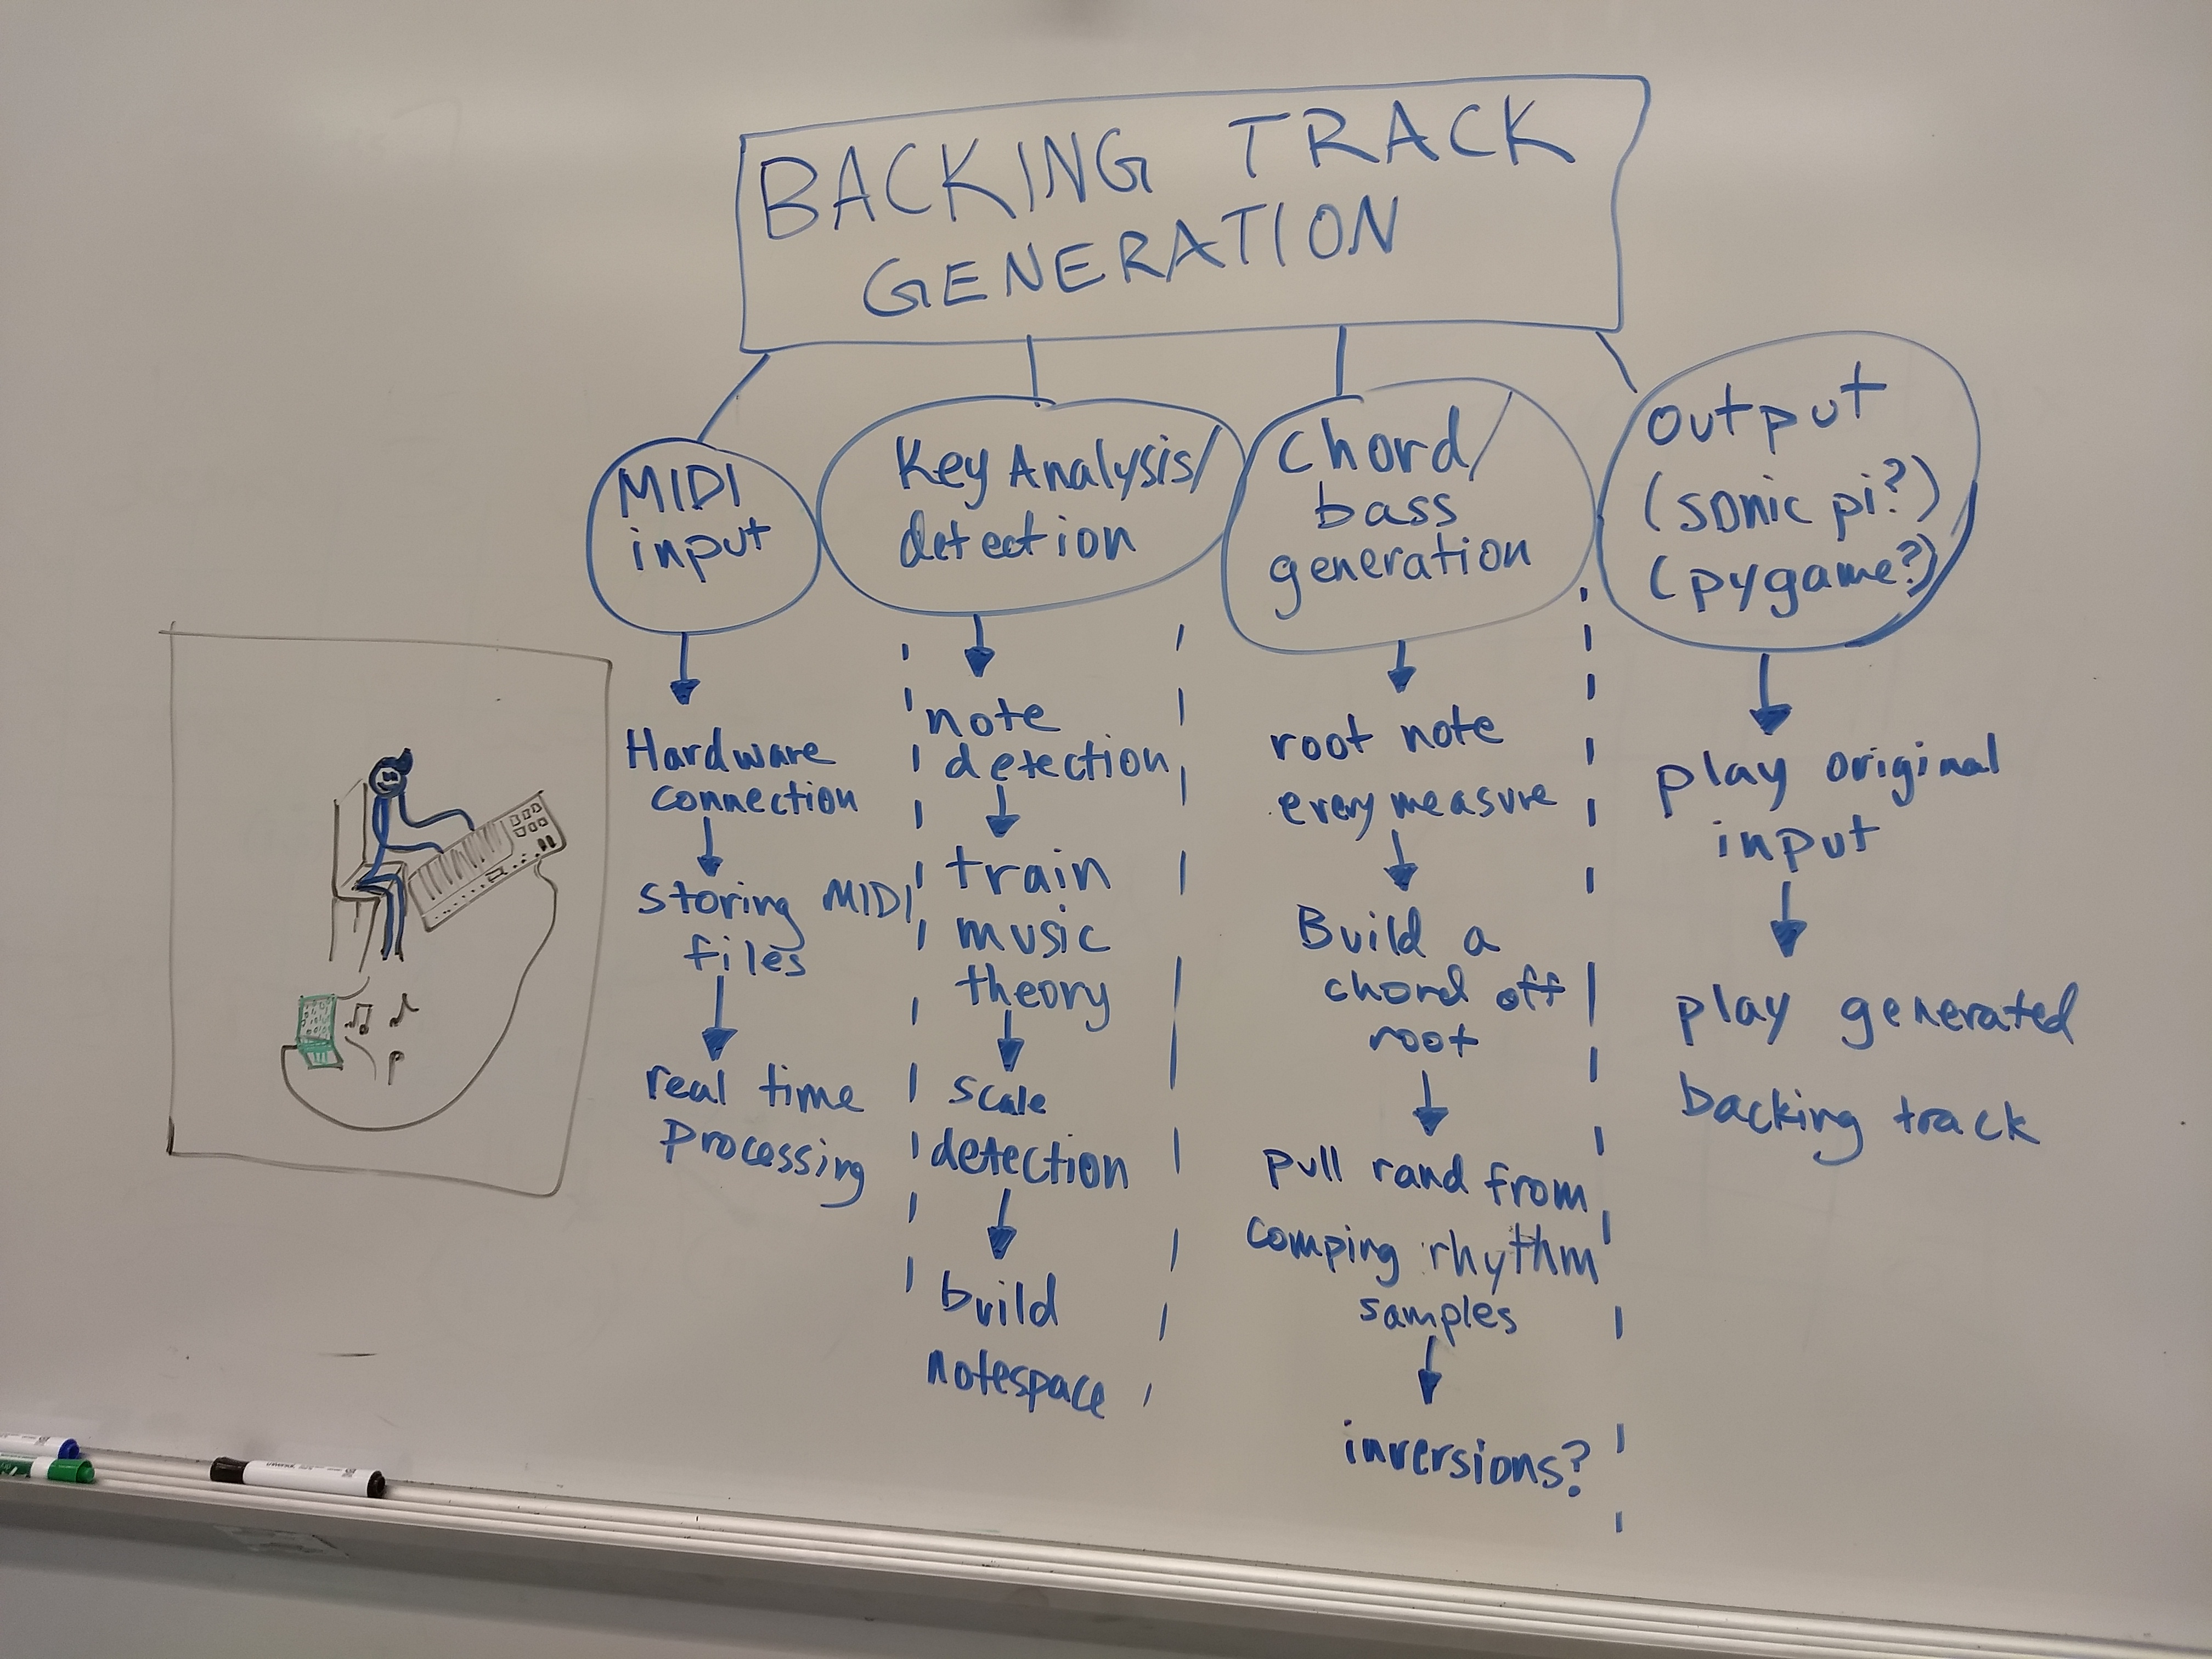 BACKING TRACK
GENERATION
MIDI
input
Hardware
connection
storing MIDI
files
real time
Processing
Key Analysis/
detection
note
detection
train
music
theory
scale
detection
build
notespace
Chord/
bass
generation
root note
every measure
Build a
chord off
root
pull rand from
comping rhythm
samples
inversions?
output
(sonic pi?)
(pygame?)
play original
input
play generated
backing track